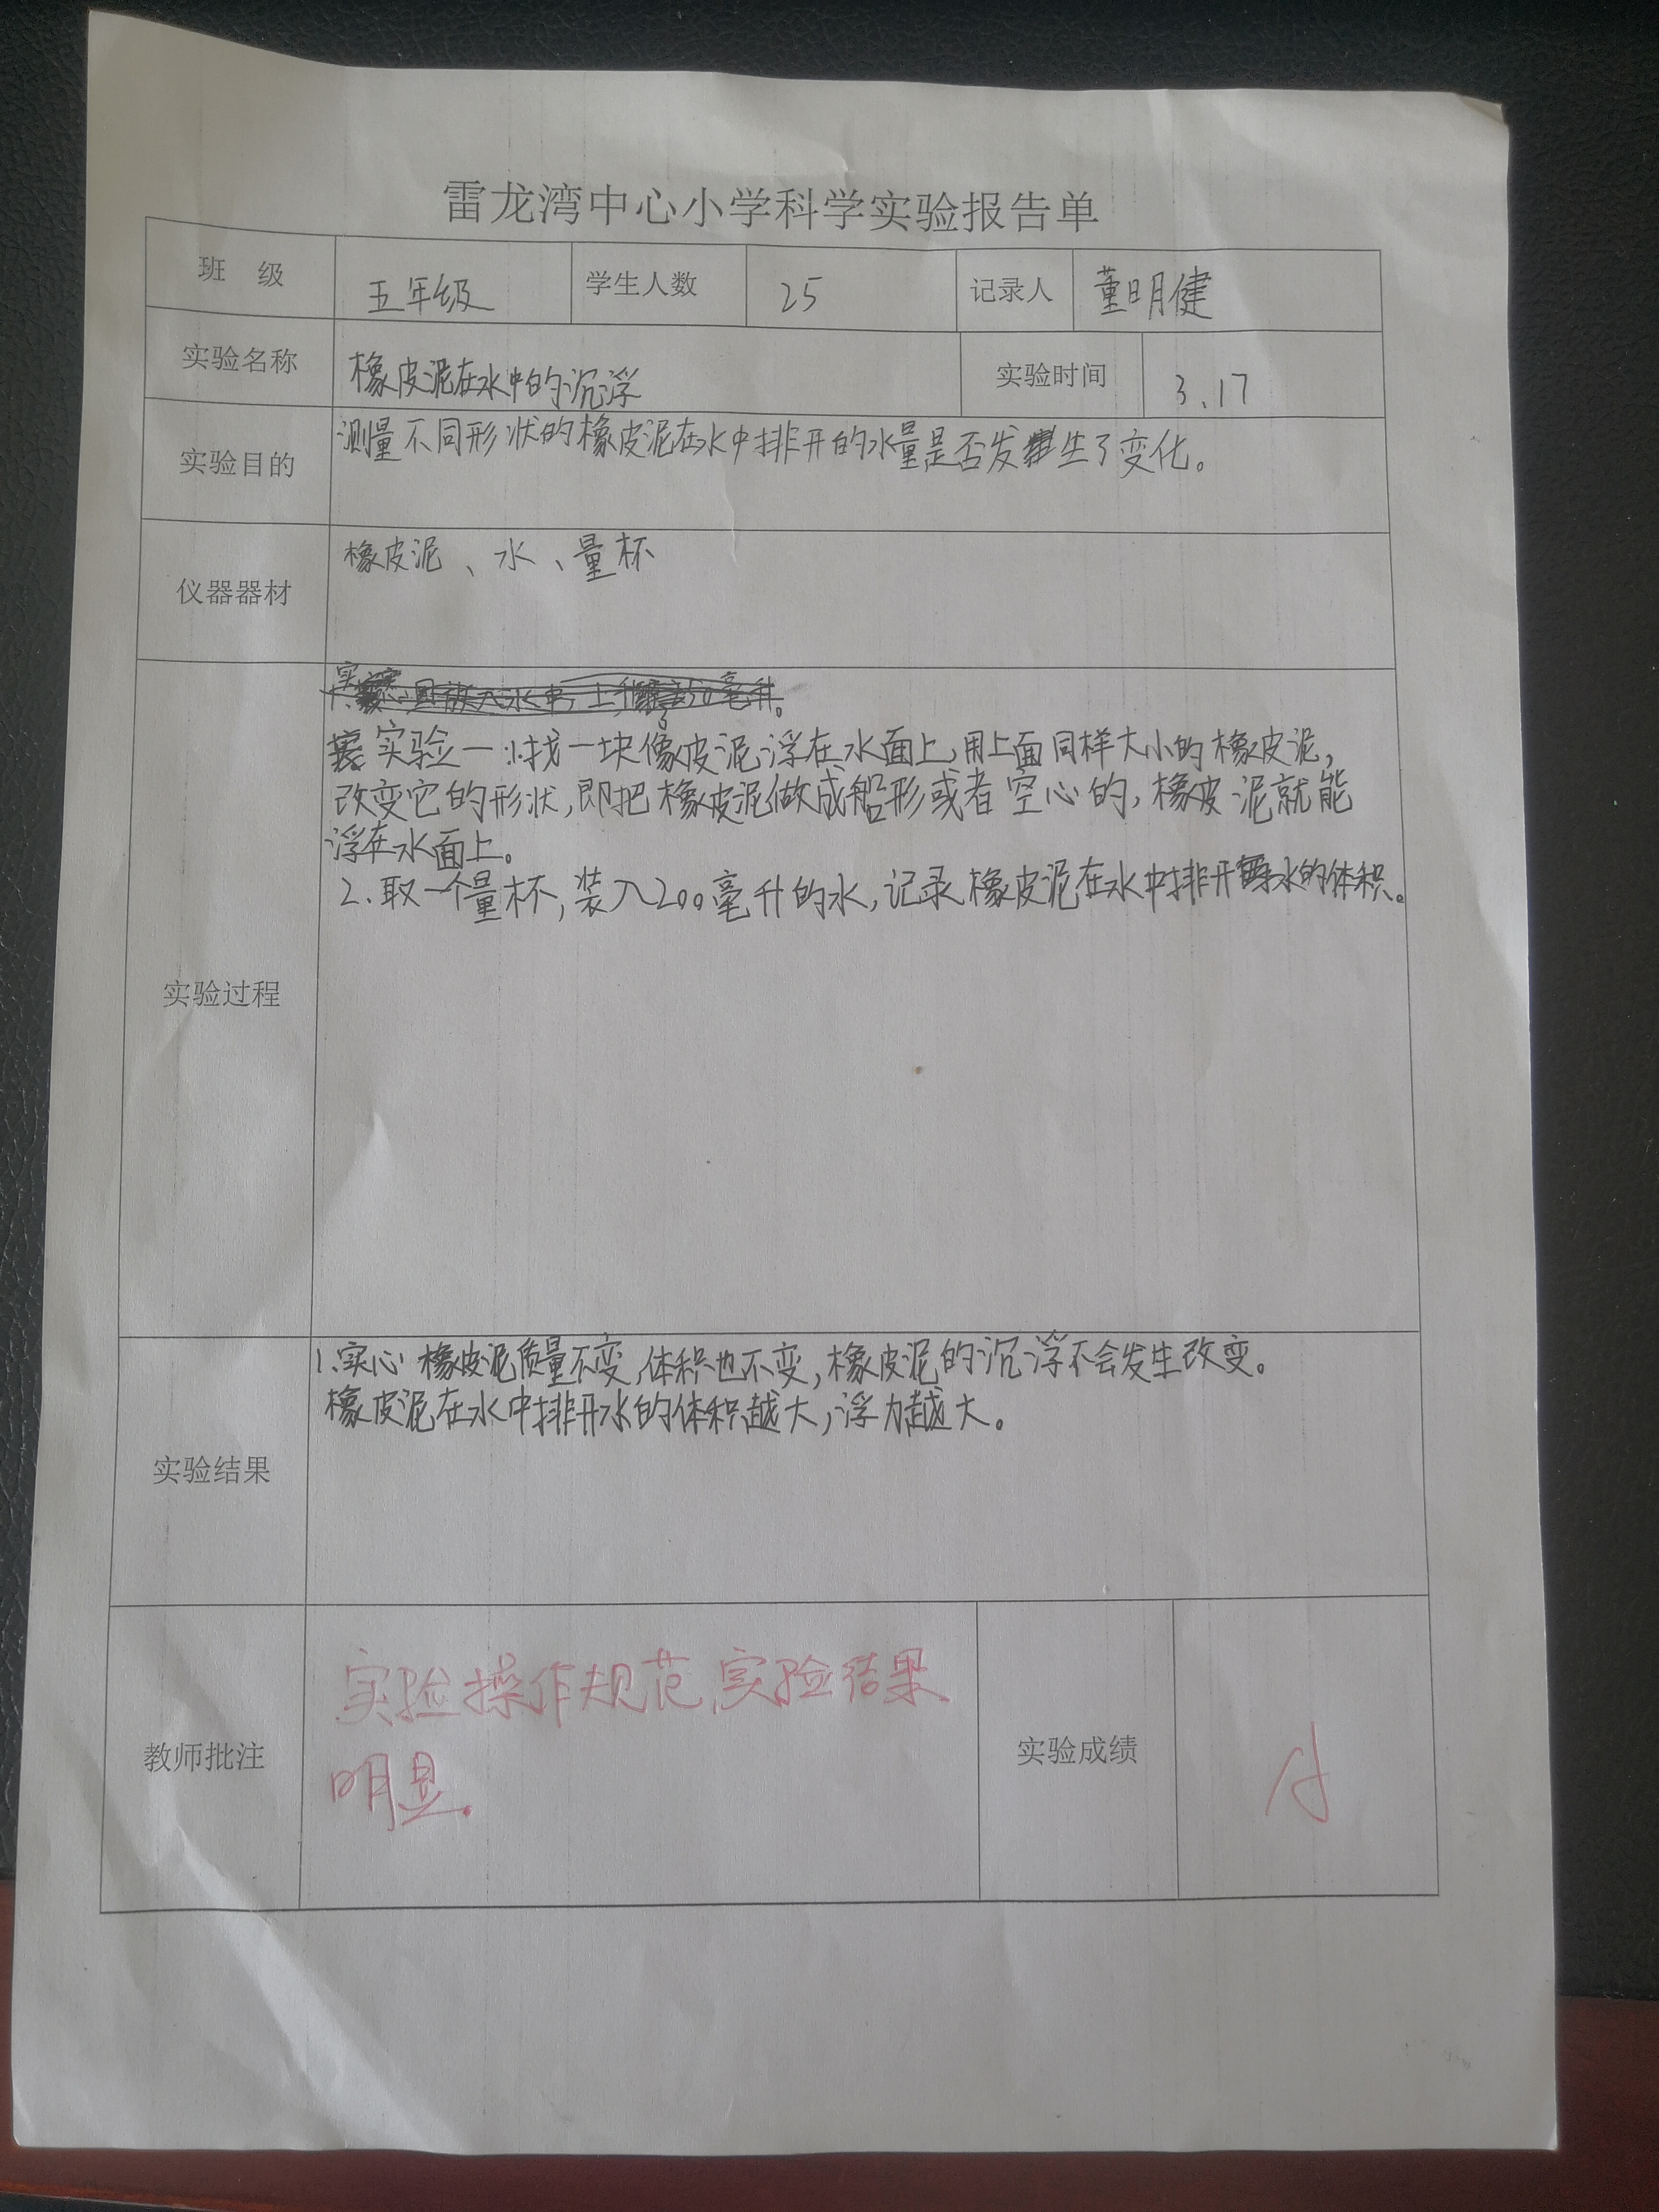 雷龙湾中心小学科学实验报告单
班 级 五年级 学生人数 25 记录人 董明健
实验名称 橡皮泥在水中的沉浮 实验时间 3.17
实验目的 测量不同形状的橡皮泥在水中排开的水量是否发生了变化。
仪器器材 橡皮泥、水、量杯
实验过程
实验一:找一块像皮泥浮在水面上,用上面同样大小的橡皮泥,
改变它的形状,即把橡皮泥做成船形或者空心的,橡皮泥就能
浮在水面上。
2.取一个量杯,装入200毫升的水,记录橡皮泥在水中排开水的体积。
实验结果
1.实心橡皮泥质量不变,体积也不变,橡皮泥的沉浮不会发生改变。
橡皮泥在水中排开水的体积越大,浮力越大。
教师批注 实验操作规范,实验结果
明显.
实验成绩